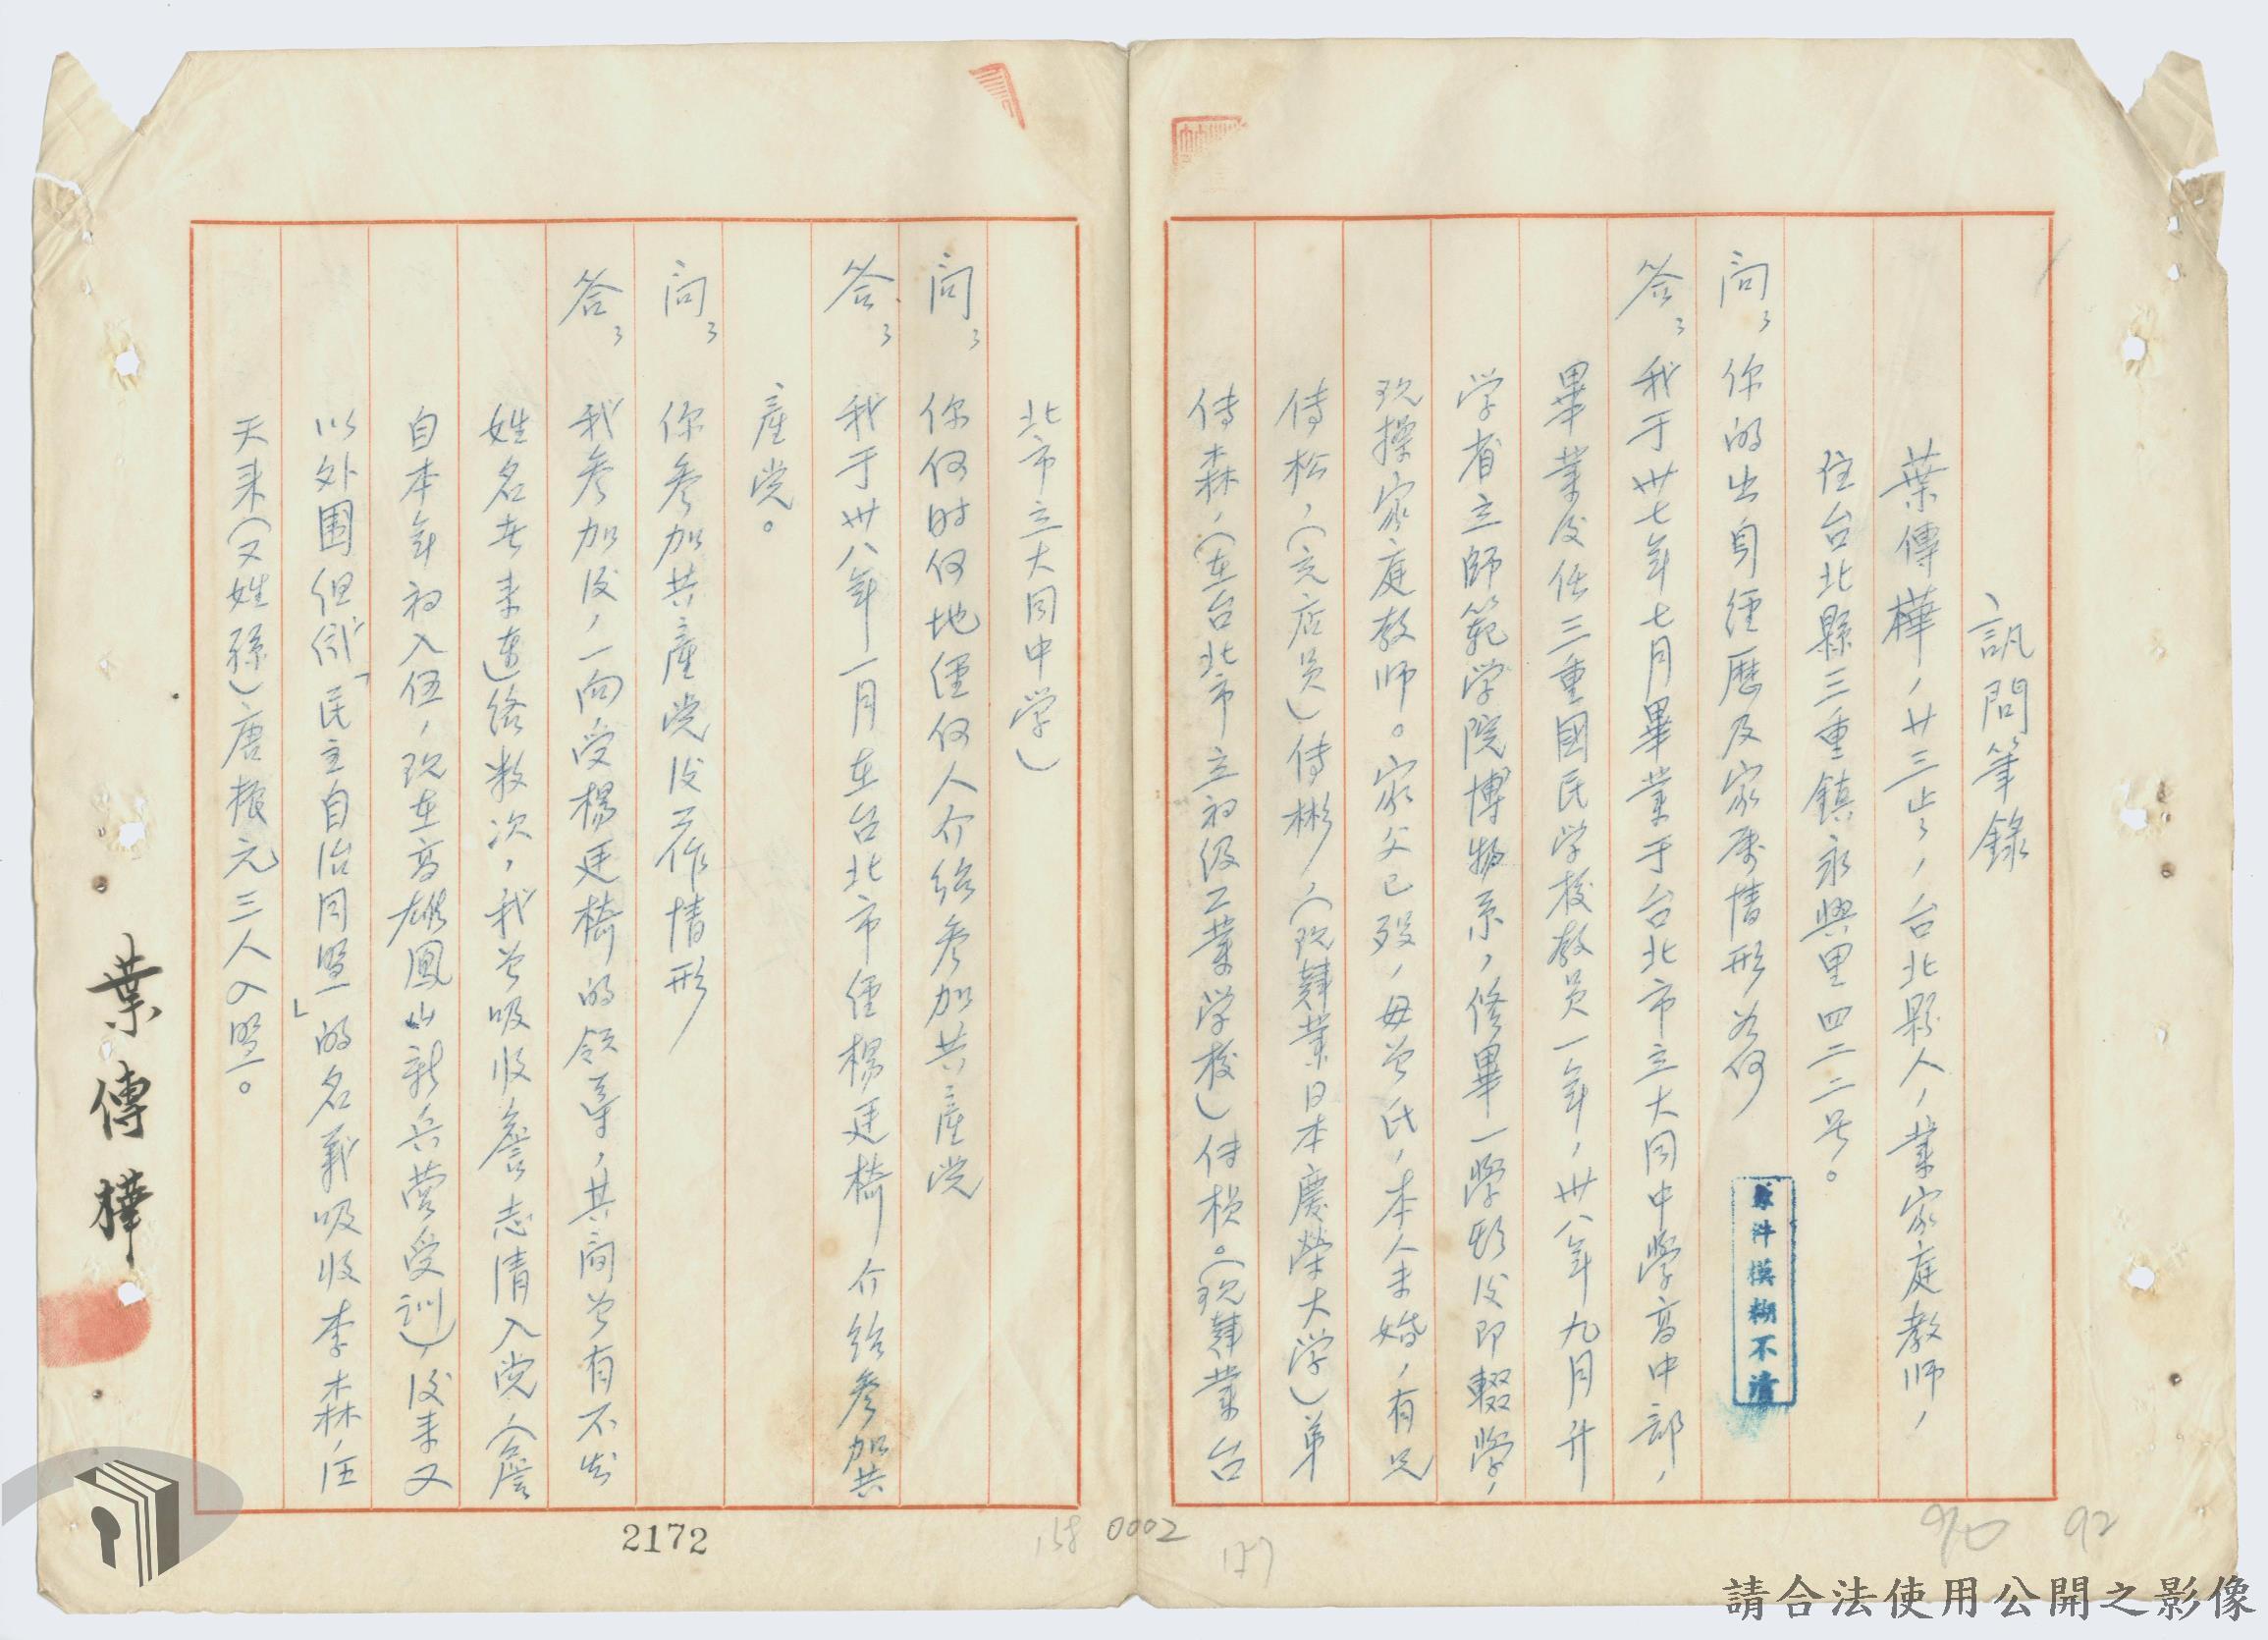 訊問筆錄
葉傳樺，廿三岁，台北縣人，業家庭教师，
住台北縣三重鎮永興里四二二号。
问：你的出身經歷及家屬情形为何
答：我于卅七年七月畢業于台北市立大同中學高中部，
畢業后任三重國民学校教員一年，卅八年九月升
学省立師範学院博物系，修畢一學期后即輟學，
现操家庭教师。家父已歿，母曾氏，本人未婚，有兄
传松，（充店员）传彬，（现肄業日本慶榮大学）弟
传森，（在台北市立初级工業学校）传楨。（现肄業台
北市立大同中学）
问：你何时何地经何人介绍参加共産党
答：我于卅八年一月在台北市经楊廷椅介紹参加共
産党。
问：你参加共産党后工作情形
答：我参加后，一向受楊廷椅的领導，其间曾有不知
姓名者来連絡数次，我曾吸收詹志清入党（詹
自本年初入伍，现在高雄鳳山新兵营受训），后来又
以外围组织「民主自治同盟」的名義吸收李森，汪
天来（又姓孫）唐振元三人入盟。
葉傳樺
案件模糊不清
2172
158
0002
157
92
請合法使用公開之影像